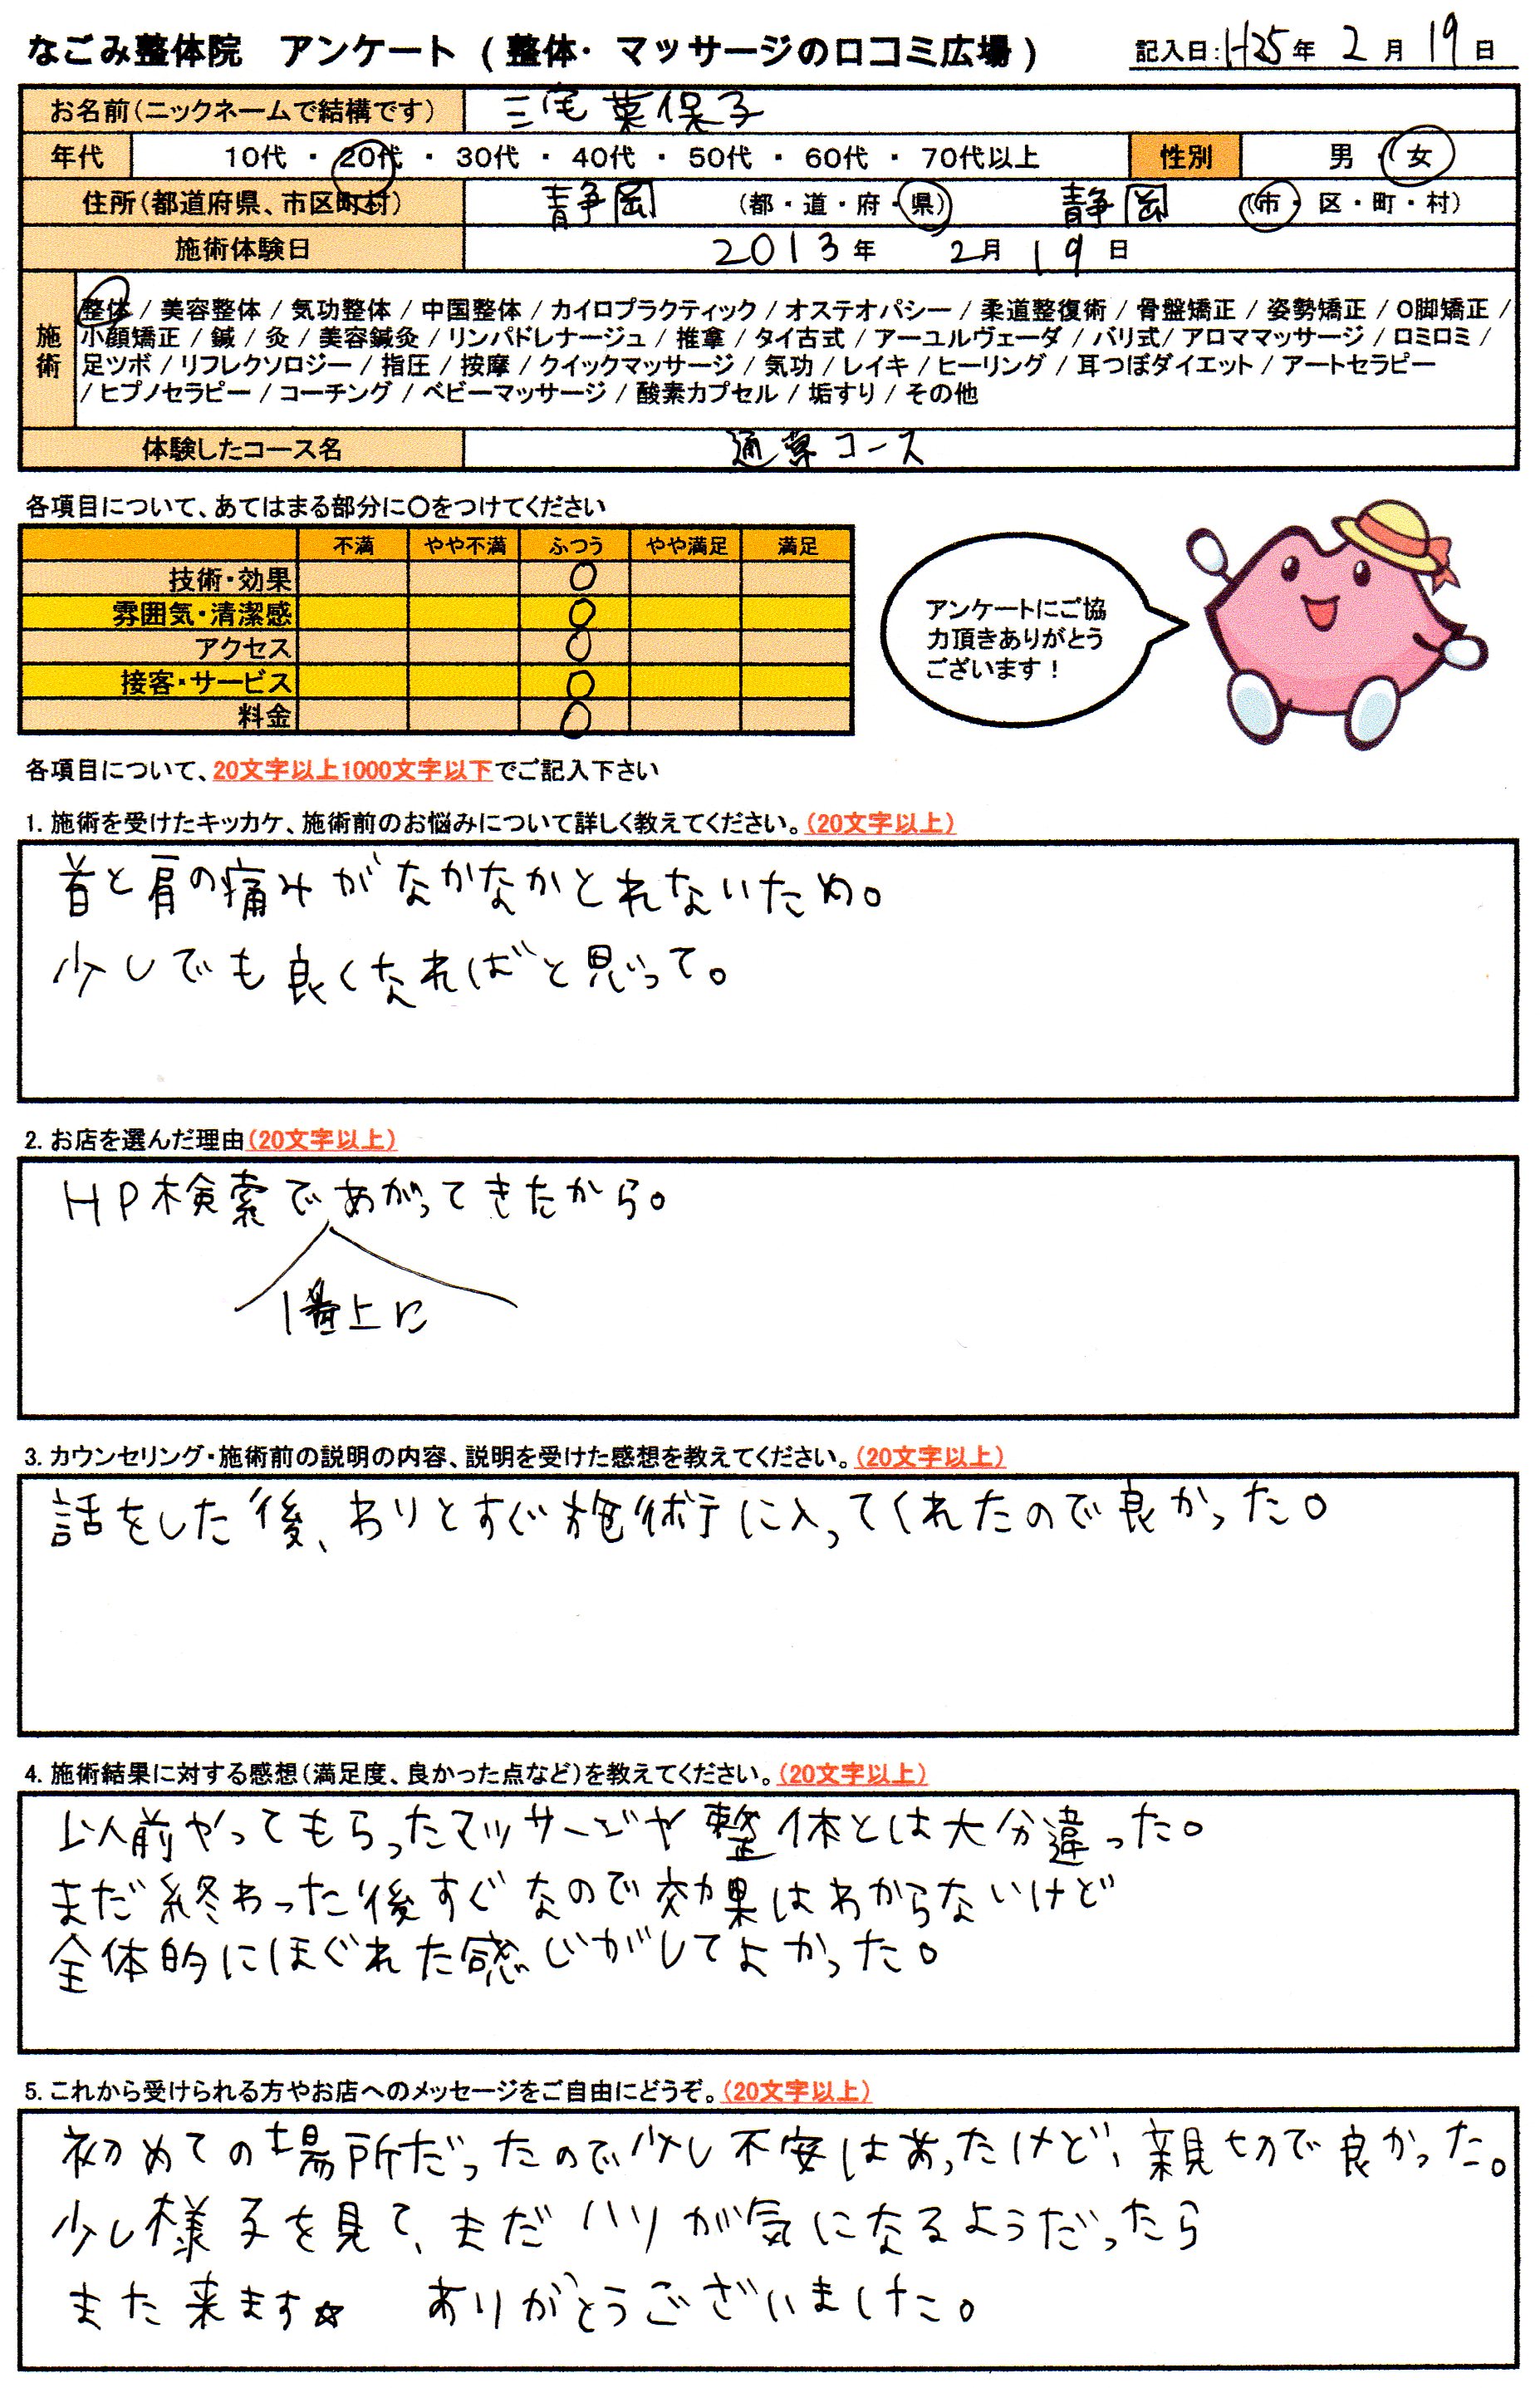 なごみ整体院 アンケート(整体・マッサージの口コミ広場) 記入日:H25年 2月 19日
お名前(ニックネームで結構です) 三宅菜保子
年代 10代 ・ 20代 ・ 30代 ・ 40代 ・ 50代 ・ 60代 ・ 70代以上 性別 男 ・ 女
住所(都道府県、市区町村) 静岡 (都・道・府・県) 静岡 (市・区・町・村)
施術体験日 2013年 2月 19日
施術
整体 / 美容整体 / 気功整体 / 中国整体 / カイロプラクティック / オステオパシー / 柔道整復術 / 骨盤矯正 / 姿勢矯正 / O脚矯正 /
小顔矯正 / 鍼 / 灸 / 美容鍼灸 / リンパドレナージュ / 推拿 / タイ古式 / アーユルヴェーダ / バリ式/ アロママッサージ / ロミロミ /
足ツボ / リフレクソロジー / 指圧 / 按摩 / クイックマッサージ / 気功 / レイキ / ヒーリング / 耳つぼダイエット / アートセラピー
/ ヒプノセラピー / コーチング / ベビーマッサージ / 酸素カプセル / 垢すり / その他
体験したコース名 通常コース
各項目について、あてはまる部分に○をつけてください
不満 やや不満 ふつう やや満足 満足
技術・効果 ○
雰囲気・清潔感 ○
アクセス ○
接客・サービス ○
料金 ○
アンケートにご協
力頂きありがとう
ございます!
各項目について、20文字以上1000文字以下でご記入下さい
1. 施術を受けたキッカケ、施術前のお悩みについて詳しく教えてください。(20文字以上)
首と肩の痛みがなかなかとれないため。
少しでも良くなればと思って。
2. お店を選んだ理由(20文字以上)
HP検索であがってきたから。
1番上に
3. カウンセリング・施術前の説明の内容、説明を受けた感想を教えてください。(20文字以上)
話をした後、わりとすぐ施術に入ってくれたので良かった。
4. 施術結果に対する感想(満足度、良かった点など)を教えてください。(20文字以上)
以前やってもらったマッサージや整体とは大分違った。
まだ終わった後すぐなので効果はわからないけど
全体的にほぐれた感じがしてよかった。
5. これから受けられる方やお店へのメッセージをご自由にどうぞ。(20文字以上)
初めての場所だったので少し不安はあったけど、親切で良かった。
少し様子を見て、まだハリが気になるようだったら
また来ます☆ ありがとうございました。